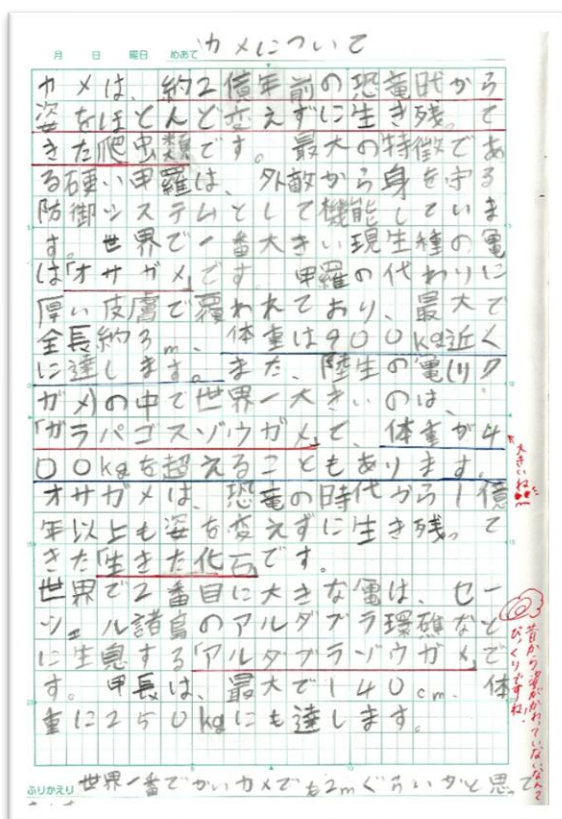 月 日 曜日 めあて カメについて
カメは、約2億年前の恐竜時から
姿をほとんど変えずに生き残って
きた爬虫類です。最大の特徴であ
る硬い甲羅は、外敵から身を守る
防御システムとして機能していま
す。世界で一番大きい現生種の亀
は「オサガメ」です。甲羅の代わりに
厚い皮膚で覆われており、最大で
全長約3m、体重は900kg近く
に達します。また、陸生の亀(リク
ガメ)の中で世界一大きいのは、
「ガラパゴスゾウガメ」で、体重が4
00kgを超えることもあります。
オサガメは、恐竜の時代から1億
年以上も姿を変えずに生き残って
きた「生きた化石」です。
世界で2番目に大きな亀は、セー
シェル諸島のアルダブラ環礁など
に生息する「アルダブラゾウガメ」で
す。甲長は、最大で140cm、体
重に250kgにも達します。
大きいね!!
昔から姿がかわっていないなんて
びっくりですね。
ふりかえり 世界一番でかいカメでも2mぐらいかと思って